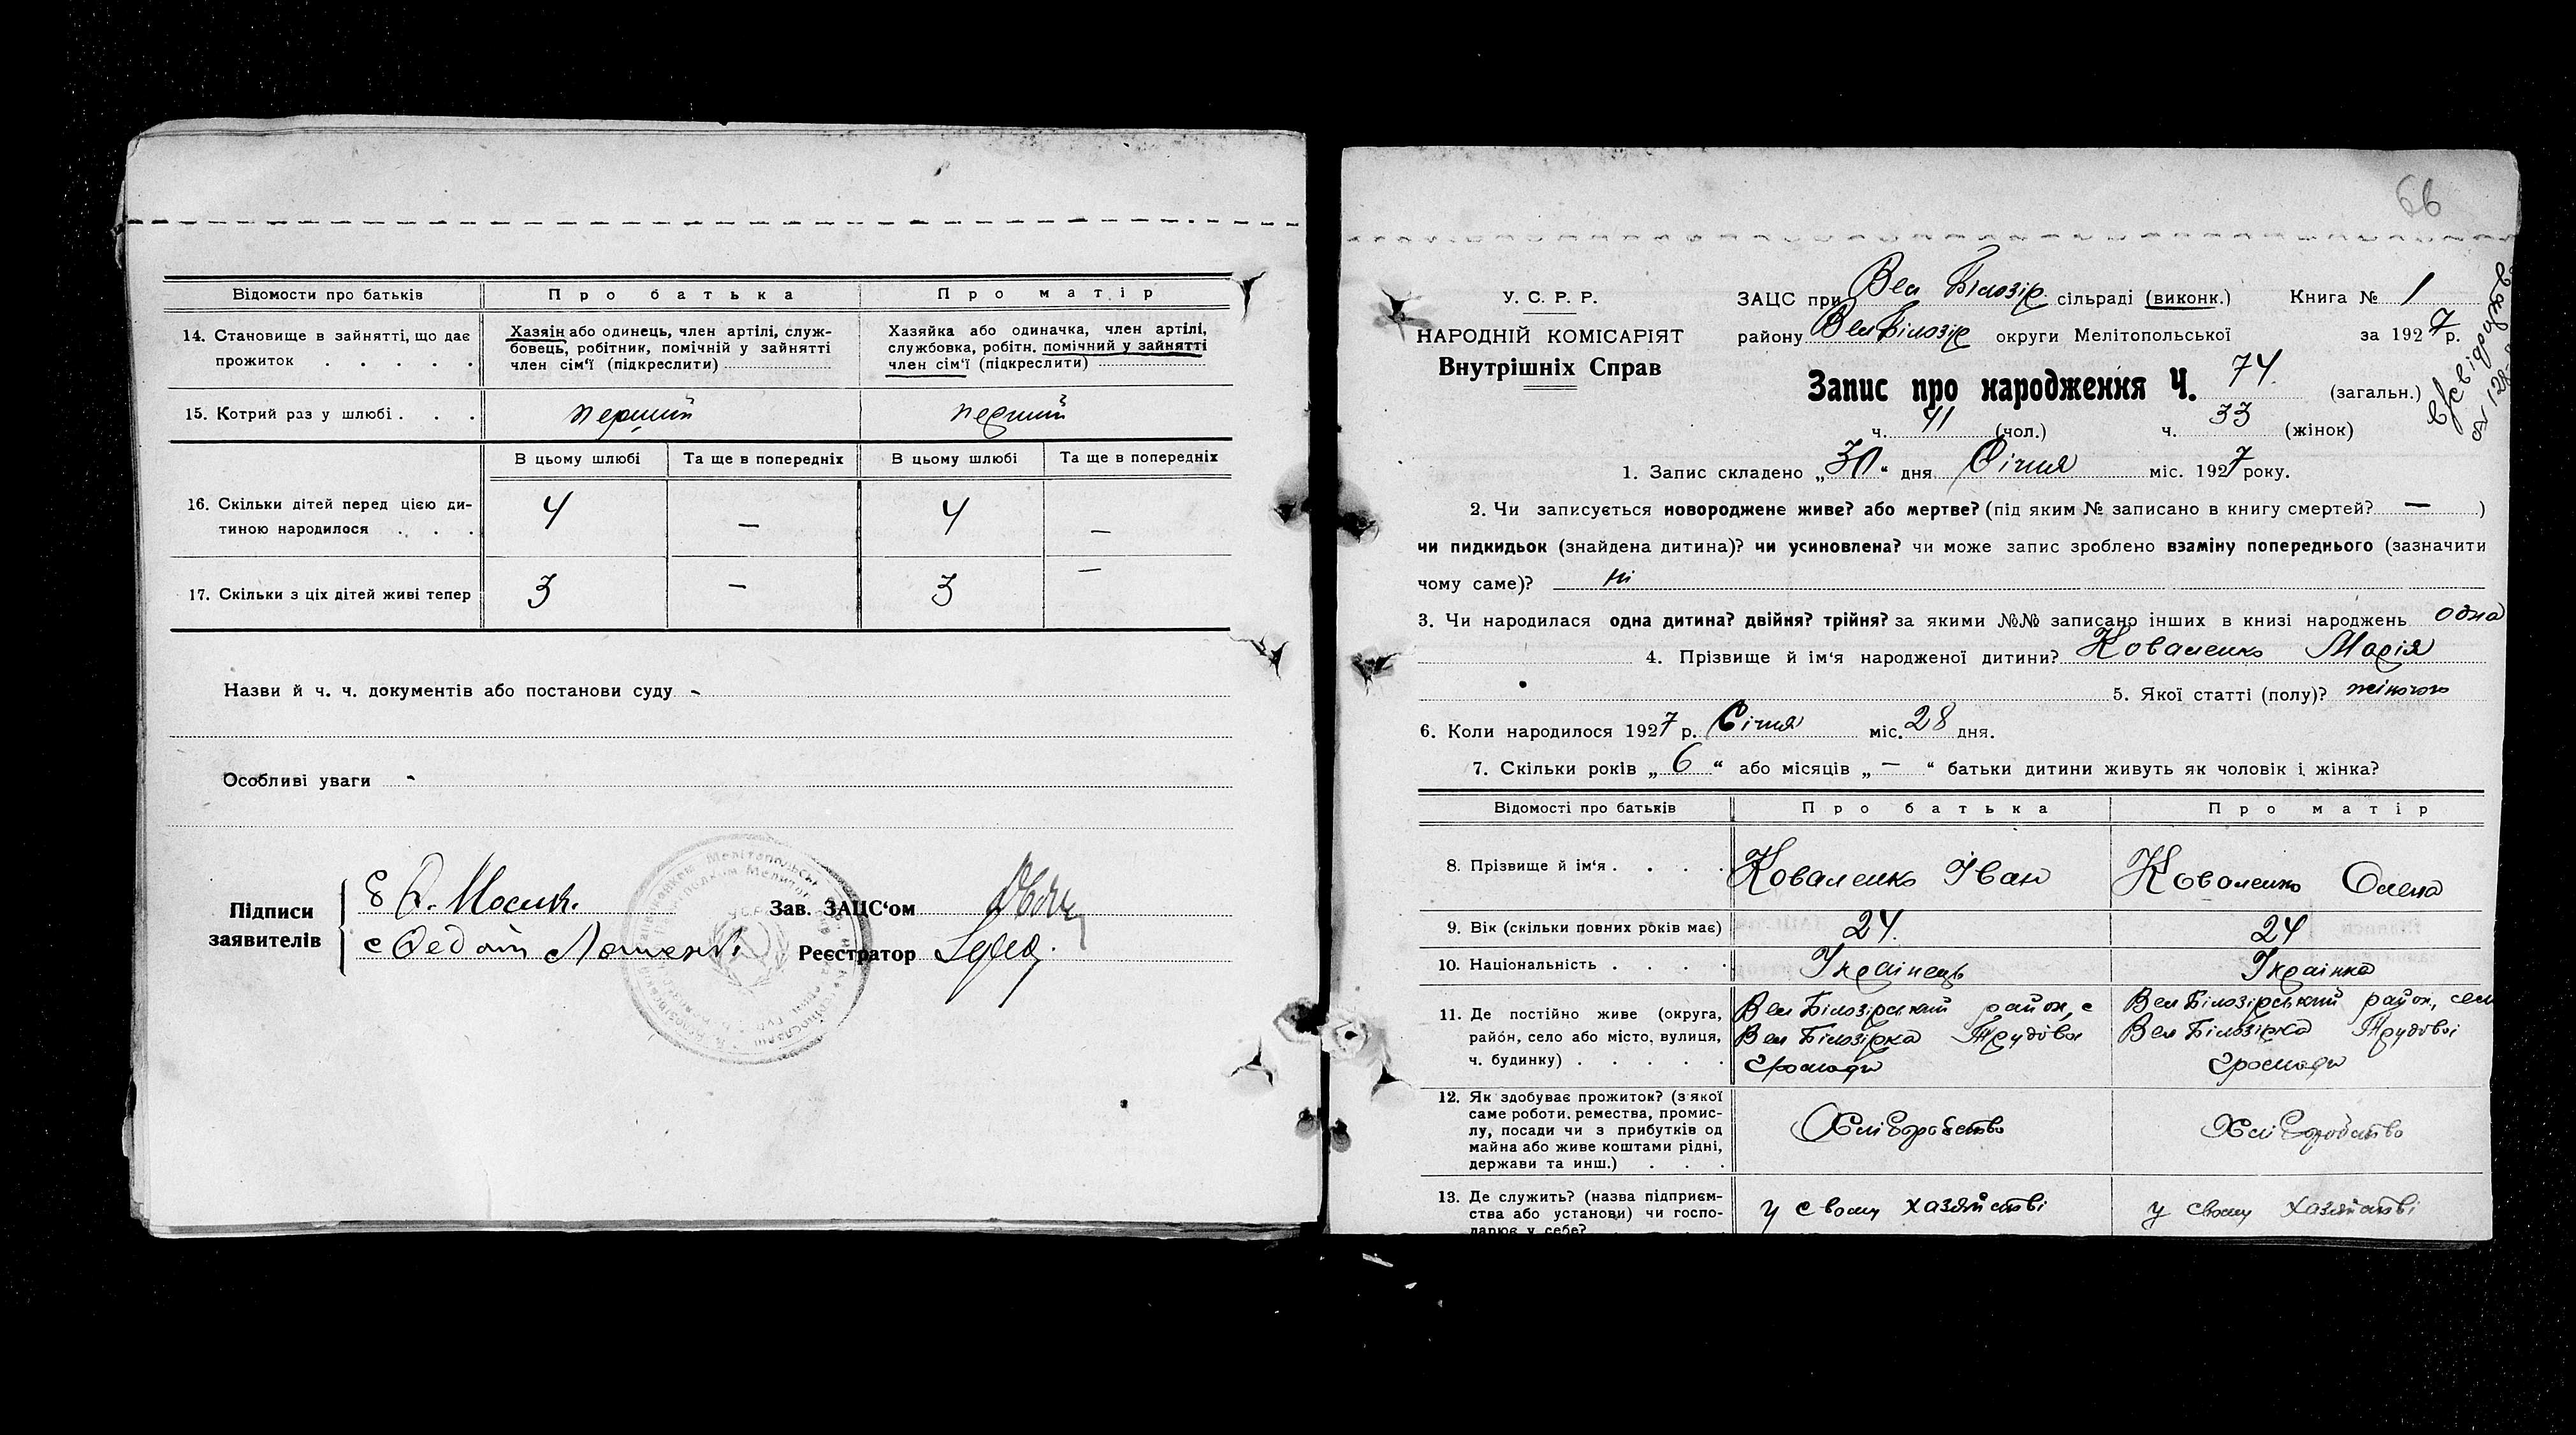 Відомости про батьків Про батька Про матір
14. Становище в зайнятті, що дає прожиток . . . . .
Хазяін або одинець, член артілі, служ-
бовець, робітник, помічній у зайнятті
член сім'ї (підкреслити)
Хазяйка або одиначка, член артілі,
службовка, робітн. помічний у зайнятті
член сім'ї (підкреслити)
15. Котрий раз у шлюбі . . . перший перший
В цьому шлюбі Та ще в попередніх В цьому шлюбі Та ще в попередніх
16. Скільки дітей перед цією ди-
тиною народилося . . . 4 — 4 —
17. Скільки з ціх дітей живі тепер 3 — 3 —
Назви й ч. ч. документів або постанови суду -
Особливі уваги -
Підписи
заявителів
Зав. ЗАЦС'ом
Реєстратор
66
У. С. Р. Р.
НАРОДНІЙ КОМІСАРІЯТ
Внутрішніх Справ
ЗАЦС при Вел Білозір. сільраді (виконк.) Книга № 1
району Вел Білозір округи Мелітопольської за 1927 р.
Запис про народження Ч. 74. (загальн.)
ч. 41 (чол.) ч. 33 (жінок)
1. Запис складено „31“ дня Січня міс. 1927 року.
2. Чи записується новороджене живе? або мертве? (під яким № записано в книгу смертей? — )
чи пидкидьок (знайдена дитина)? чи усиновлена? чи може запис зроблено взаміну попереднього (зазначити
чому саме)? ні
3. Чи народилася одна дитина? двійня? трійня? за якими №№ записано інших в книзі народжень одна
4. Прізвище й ім'я народженої дитини? Коваленко Марія
5. Якої статті (полу)? жіночого
6. Коли народилося 1927 р. Січня міс. 28 дня.
7. Скільки років „6“ або місяців „—“ батьки дитини живуть як чоловік і жінка?
Відомості про батьків Про батька Про матір
8. Прізвище й ім'я . . . . Коваленко Іван Коваленко Олена
9. Вік (скільки повних років має) 24. 24
10. Національність . . . . Українець Українка
11. Де постійно живе (округа,
район, село або місто, вулиця,
ч. будинку) . . . . .
Вел Білозірський район, с
Вел Білозірка Трудової
Громади
Вел Білозірський район, сел
Вел Білозірка Трудової
Громади
12. Як здобуває прожиток? (з якої
саме роботи, ремества, промис-
лу, посади чи з прибутків од
майна або живе коштами рідні,
держави та инш.) . . .
Хліборобство Хліборобство
13. Де служить? (назва підприєм-
ства або установи) чи госпо-
дарює у себе?
у своєму хазяйстві у своєму хазяйстві